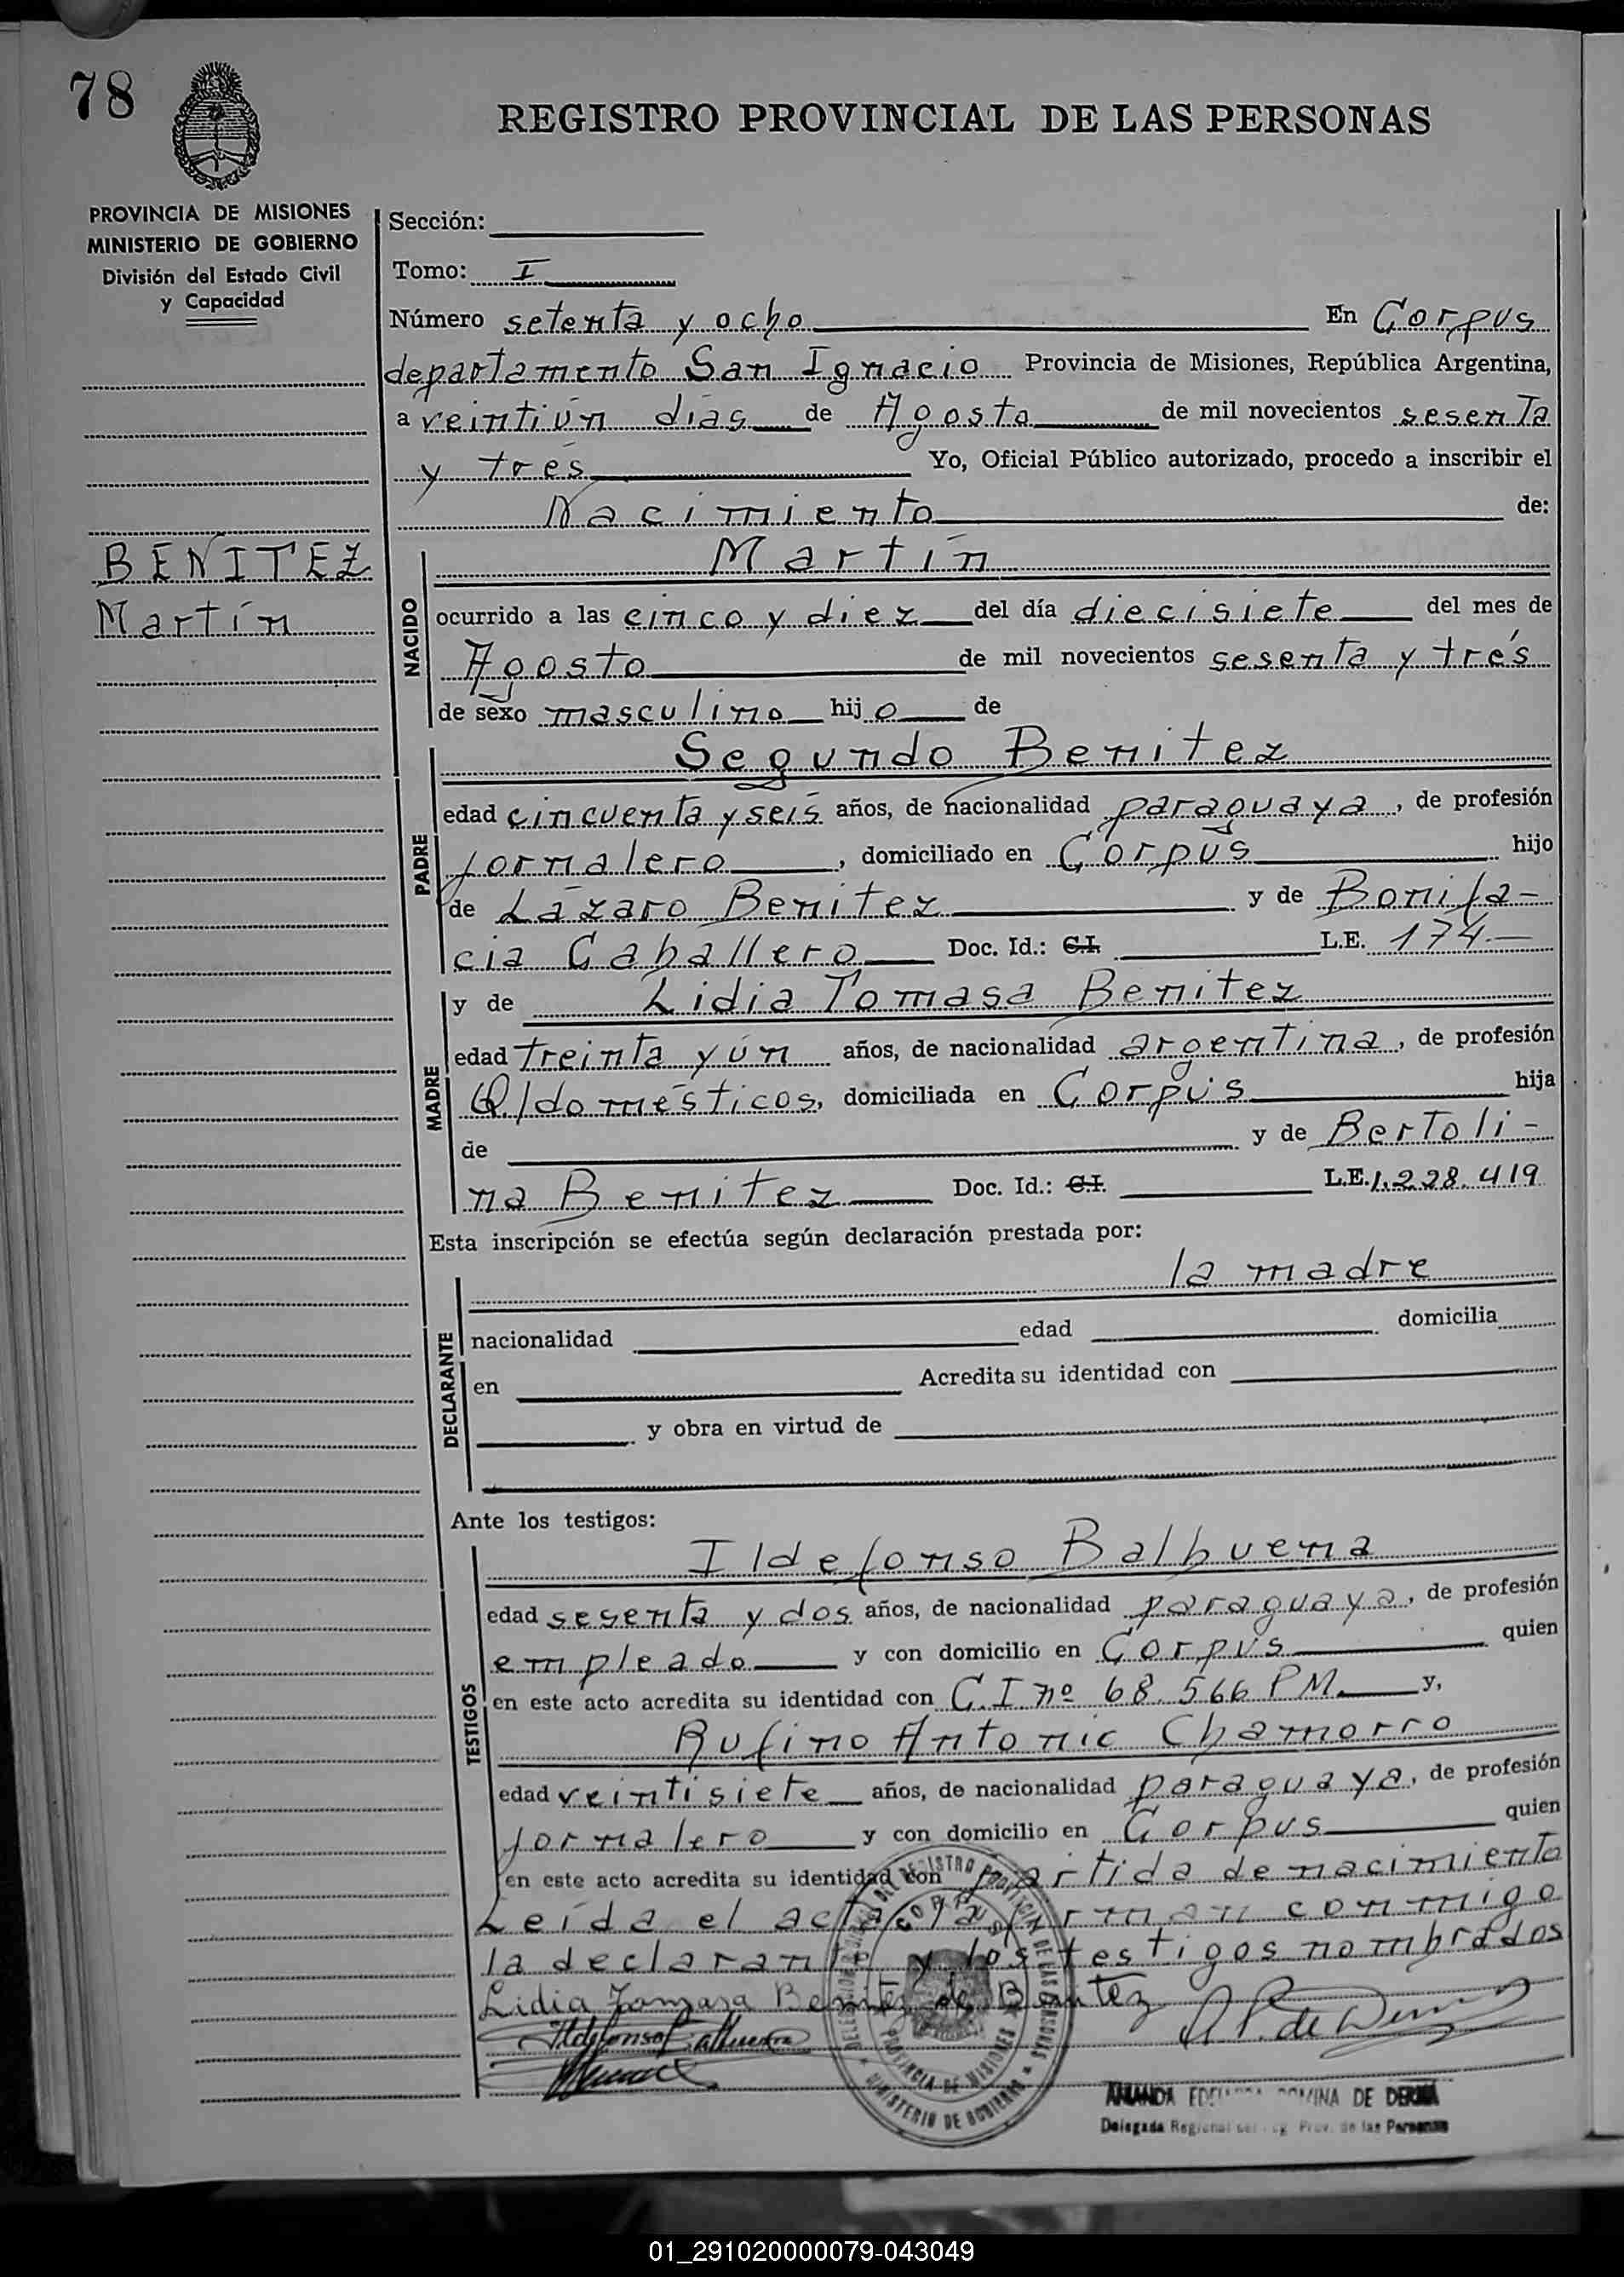 78
REGISTRO PROVINCIAL DE LAS PERSONAS
PROVINCIA DE MISIONES
MINISTERIO DE GOBIERNO
División del Estado Civil
y Capacidad
Sección:
Tomo: I
Número setenta y ocho En Corpus
departamento San Ignacio Provincia de Misiones, República Argentina,
a veintiún días de Agosto de mil novecientos sesenta
y trés Yo, Oficial Público autorizado, procedo a inscribir el
Nacimiento de:
BENITEZ
Martín
NACIDO
Martín
ocurrido a las cinco y diez del día diecisiete del mes de
Agosto de mil novecientos sesenta y trés
de sexo masculino hijo de
PADRE
Segundo Benitez
edad cincuenta y seis años, de nacionalidad paraguaya, de profesión
jornalero, domiciliado en Corpus hijo
de Lázaro Benitez y de Bonifa-
cia Caballero Doc. Id.: C.I. L.E. 174.—
MADRE
y de Lidia Tomasa Benitez
edad treinta y ún años, de nacionalidad argentina, de profesión
Q/domésticos, domiciliada en Corpus hija
de y de Bertoli-
na Benitez Doc. Id.: C.I. L.E. 1.228.419
Esta inscripción se efectúa según declaración prestada por:
DECLARANTE
la madre
nacionalidad edad domicilia
en Acredita su identidad con
y obra en virtud de
Ante los testigos:
TESTIGOS
Ildefonso Balbuena
edad sesenta y dos años, de nacionalidad paraguaya, de profesión
empleado y con domicilio en Corpus quien
en este acto acredita su identidad con C.I nº 68.566 P M. y,
Rufino Antonio Chamorro
edad veintisiete años, de nacionalidad paraguaya, de profesión
jornalero y con domicilio en Corpus quien
en este acto acredita su identidad con partida de nacimiento
Leída el acta la firman conmigo
la declarante y los testigos nombrados
Lidia Tomasa Benitez de Benitez
Ildefonso Balbuena
DELEGACION REGISTRO PROVINCIAL DE LAS PERSONAS
CORPUS
PROVINCIA DE MISIONES
MINISTERIO DE GOBIERNO
AMANDA DE DERNA
Delegada Regional Prov. de las Personas
01_291020000079-043049